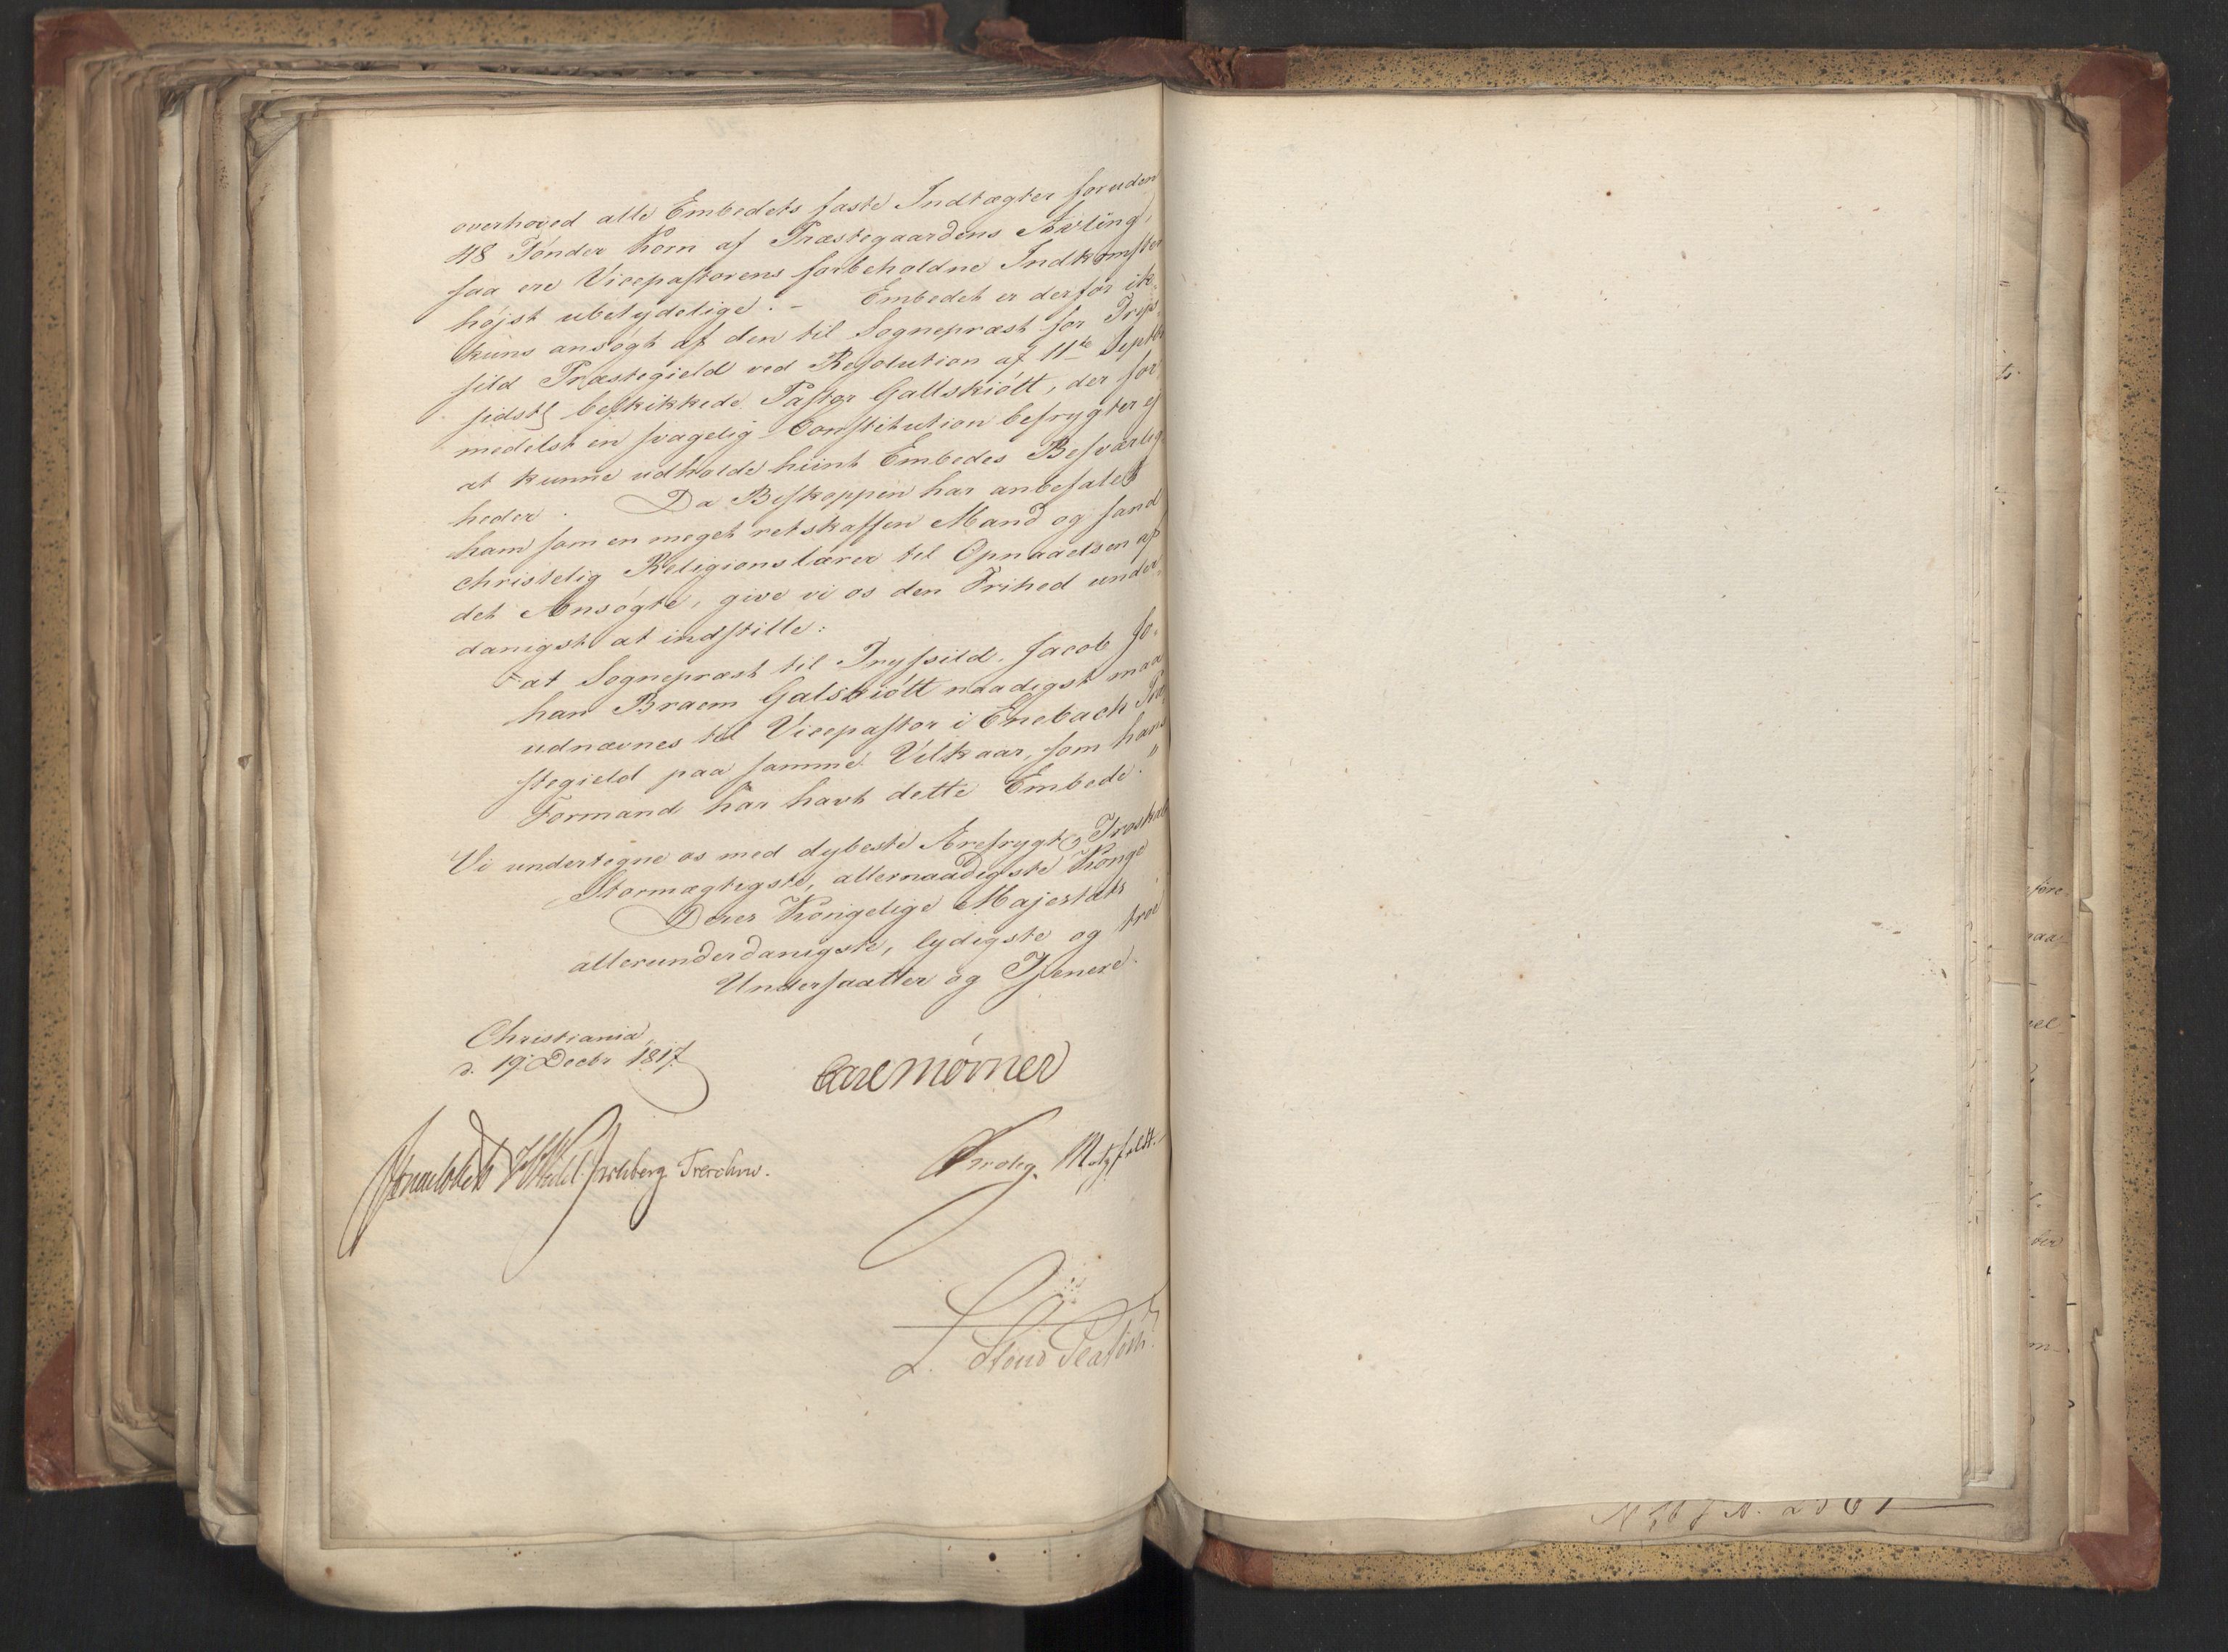 overhoved alle Embedets faste Indtægter foruden
48 Tønder Korn af Præstegaardens Avling,
saa ere Vicepastorens forbeholdne Indkomster
højst ubetydelige. - Embedet er derfor ik-
kuns ansøgt af den til Sognepræst for Trys-
sild Præstegield ved Resolution af 11te Septbr
sidstl beskikkede Pastor Gallskiött, der for-
medelst en svagelig Constitution befrygter ej
at kunne udholde hiint Embedes Besværlig-
heder. Da Biskoppen har anbefalet
ham som en meget retskaffen Mand og sand
christelig Religionslærer til Opnaaelsen af
det Ansøgte, give vi os den Frihed under-
danigst at indstille:
"at Sognepræst til Tryssild, Jacob Jo-
han Braem Galskiött naadigst maa
udnævnes til Vicepastor i Enebach Præ-
stegield paa samme Vilkaar, som hans
Formand har havt dette Embede."
Vi undertegne os med dybeste Ærefrygt og Troskab
Stormægtigste, allernaadigste Konge
Deres Kongelige Majestæts
allerunderdanigste, lydigste og troe
Undersaatter og Tjenere.
Christiania
d. 19 Decbr 1817.
Carl Mörner
Sommerhielm Wedel Jarlsberg Treschow.
Krohg. Motzfeldt.
L. Stoud Platou